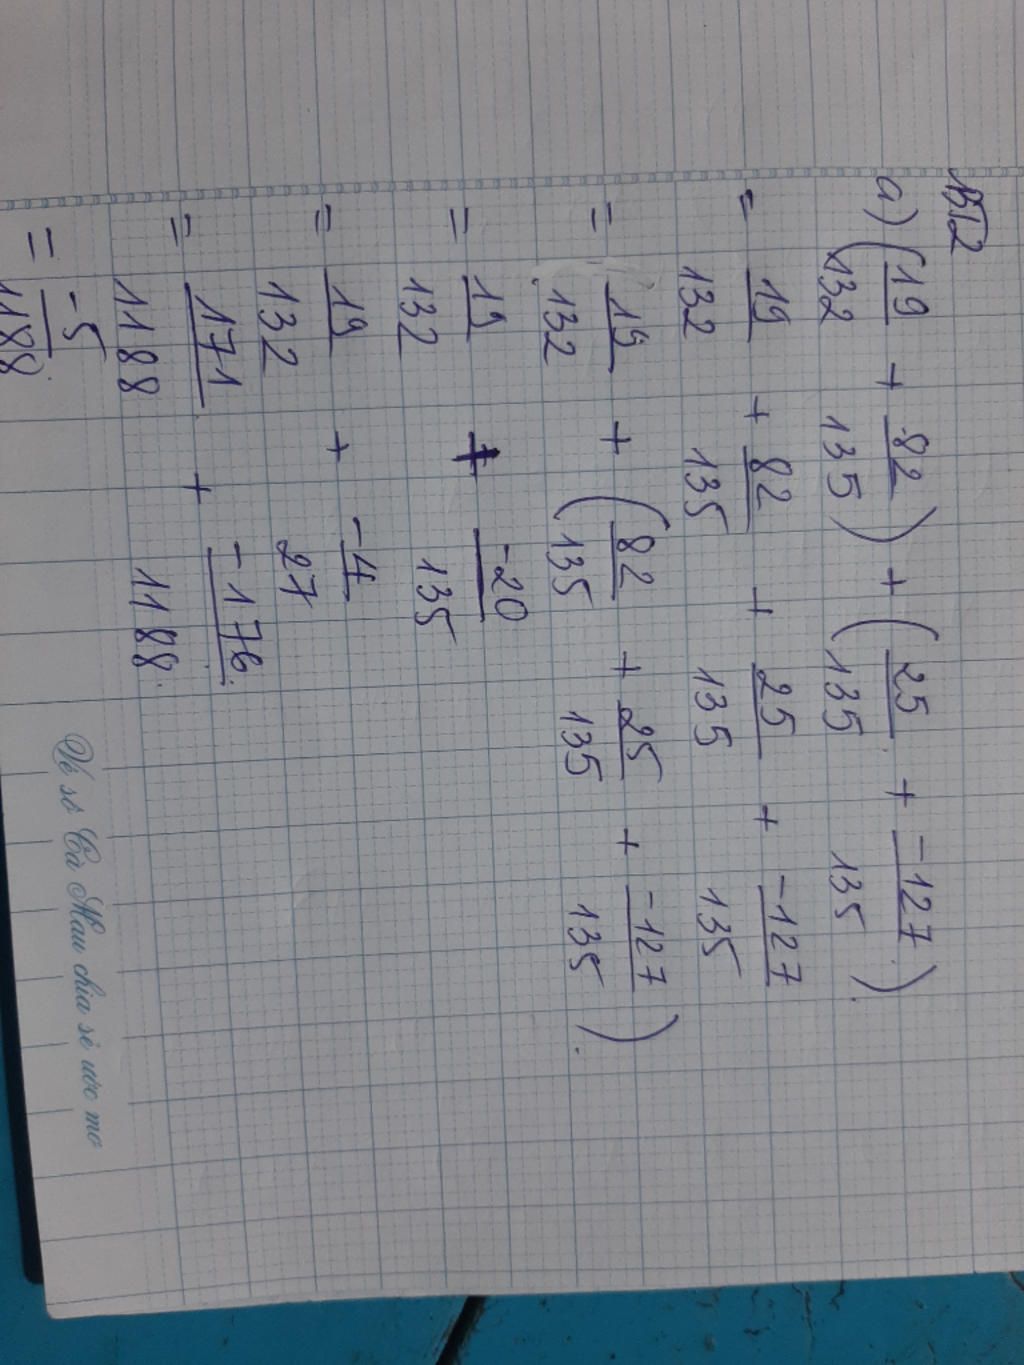 BT2
a) (19/132 + 82/135) + (25/135 + -127/135)
= 19/132 + 82/135 + 25/135 + -127/135
= 19/132 + (82/135 + 25/135 + -127/135).
= 19/132 + -20/135
= 19/132 + -4/27
= 171/1188 + -176/1188.
= -5/1188
Vé số Cà Mau chia sẻ ước mơ